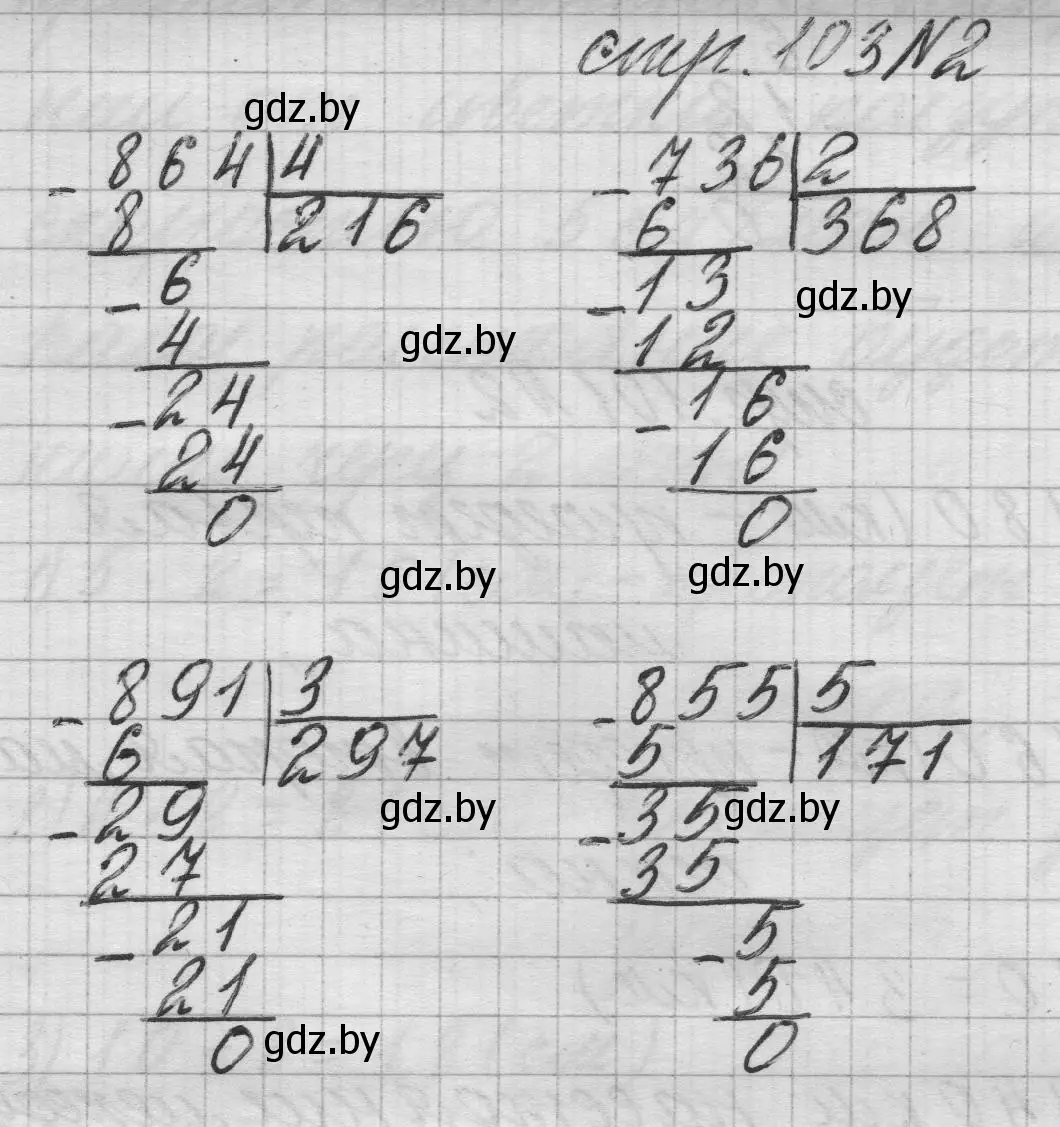 стр. 103 N2
gdz.by
- 864 | 4
8 | 216
- 6
4
- 24
24
0
- 736 | 2
6 | 368
- 13
gdz.by
12
gdz.by
- 16
16
0
gdz.by
gdz.by
- 891 | 3
6 | 297
- 29
gdz.by
27
- 21
21
0
gdz.by
- 855 | 5
5 | 171
- 35
gdz.by
35
- 5
5
0